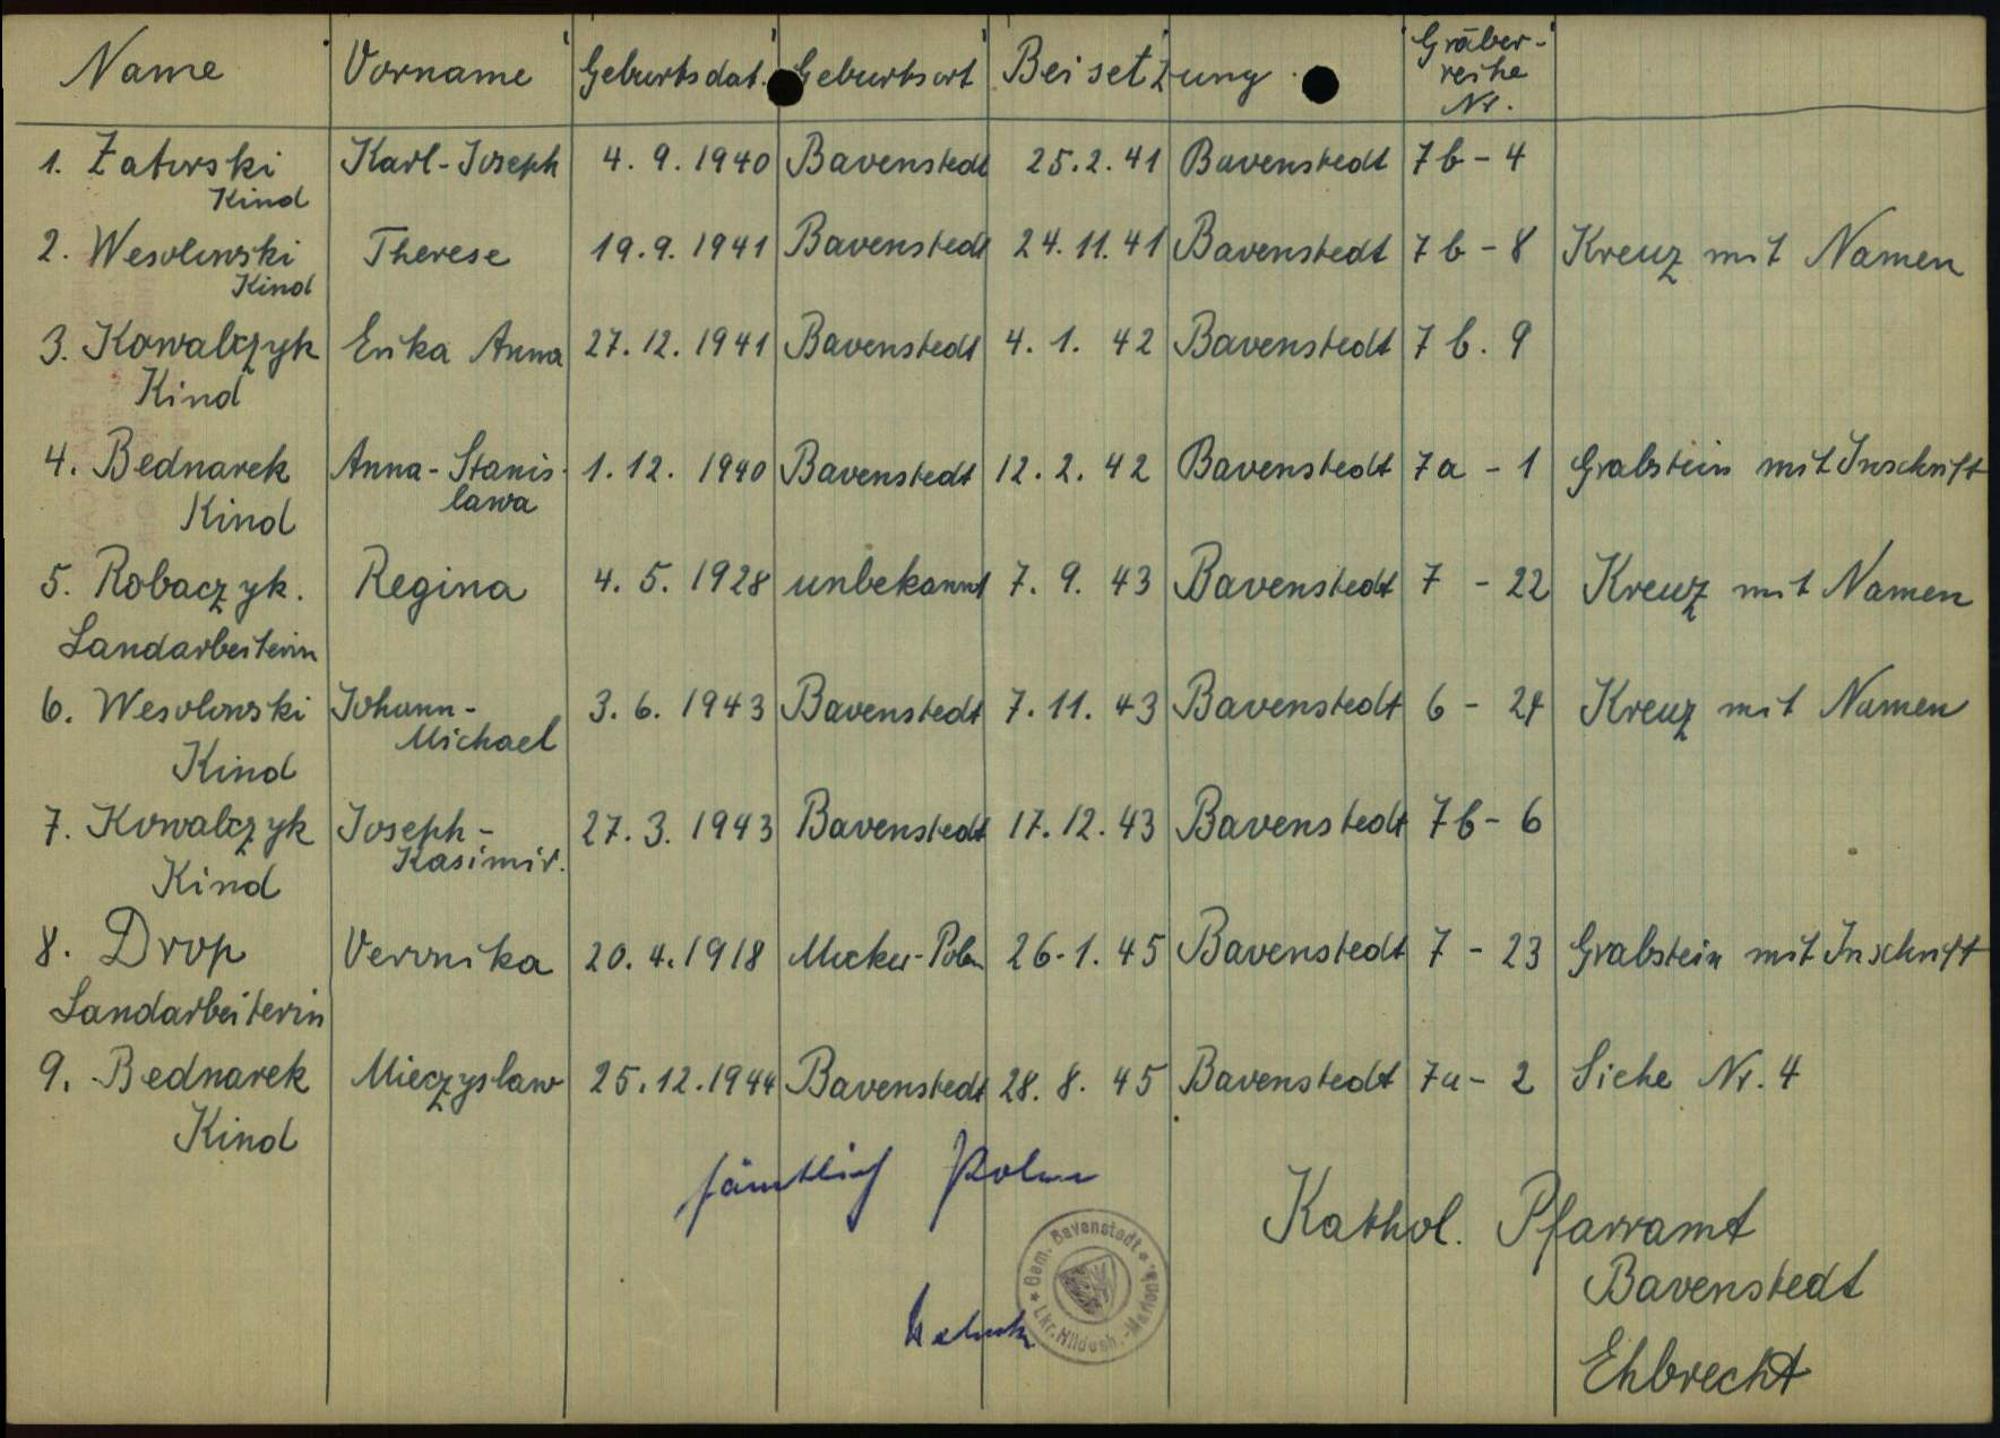 Name Vorname Geburtsdat. Geburtsort Beisetzung. Gräber-
reihe
Nr.
1. Zatorski Karl-Joseph 4. 9. 1940 Bavenstedt 25. 2. 41 Bavenstedt 7b - 4
Kind
2. Wesolowski Therese 19. 9. 1941 Bavenstedt 24. 11. 41 Bavenstedt 7b - 8 Kreuz mit Namen
Kind
3. Kowalczyk Erika Anna 27. 12. 1941 Bavenstedt 4. 1. 42 Bavenstedt 7b. 9
Kind
4. Bednarek Anna-Stanis- 1. 12. 1940 Bavenstedt 12. 2. 42 Bavenstedt 7a - 1 Grabstein mit Inschrift
lawa
Kind
5. Robaczyk. Regina 4. 5. 1928 unbekannt 7. 9. 43 Bavenstedt 7 - 22 Kreuz mit Namen
Landarbeiterin
6. Wesolowski Johann- 3. 6. 1943 Bavenstedt 7. 11. 43 Bavenstedt 6 - Kreuz mit Namen
Michael
Kind
7. Kowalczyk Joseph- 27. 3. 1943 Bavenstedt 17. 12. 43 Bavenstedt 7b - 6
Kasimir.
Kind
8. Drop Veronika 20. 4. 1918 26. 1. 45 Bavenstedt 7 - 23 Grabstein mit Inschrift
Landarbeiterin
9. Bednarek Mieczyslaw 25. 12. 1944 Bavenstedt 28. 8. 45 Bavenstedt 7a - 2 Siehe Nr. 4
Kind
sämtlich Polen
Kathol. Pfarramt
Bavenstedt
Ehbrecht
Gem. Bavenstedt
Lkr. Hildesh.-Marienb.